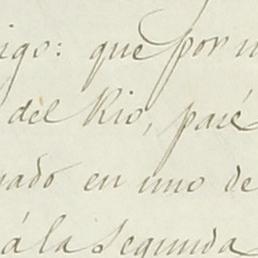 igo: que por
del Rio, paré
uado en uno de
á la Segunda